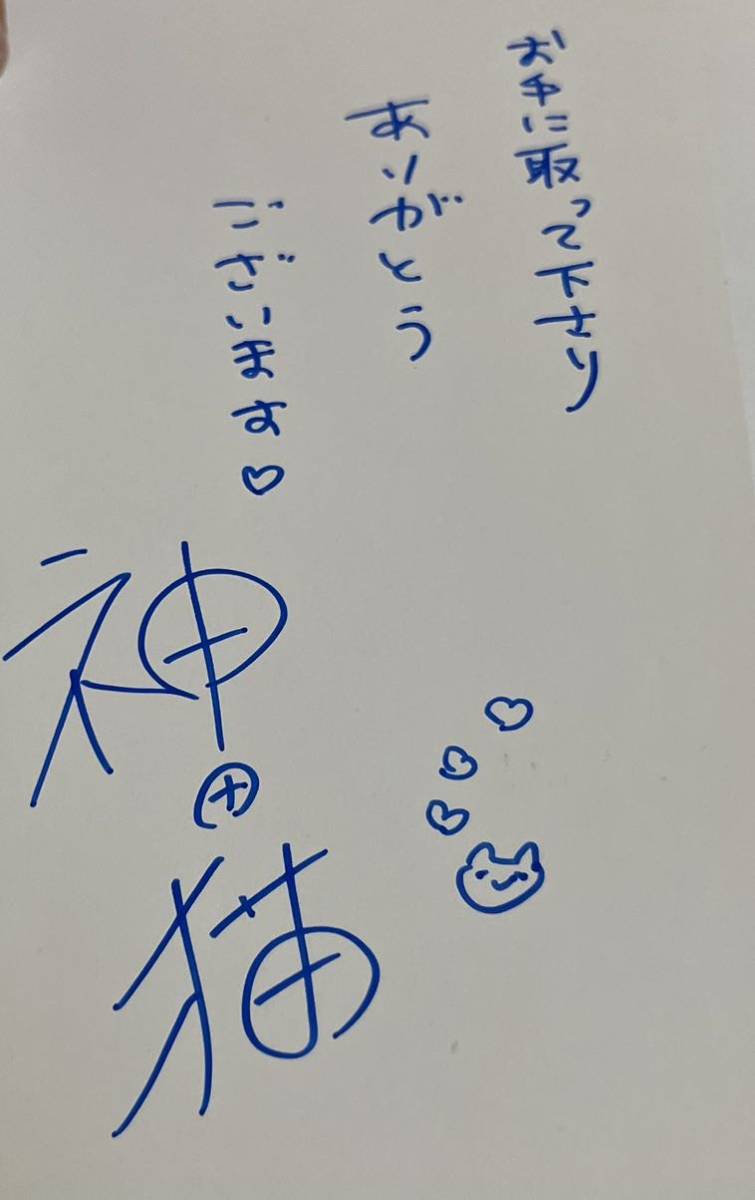 お手に取って下さり
ありがとう
ございます♡
神田猫